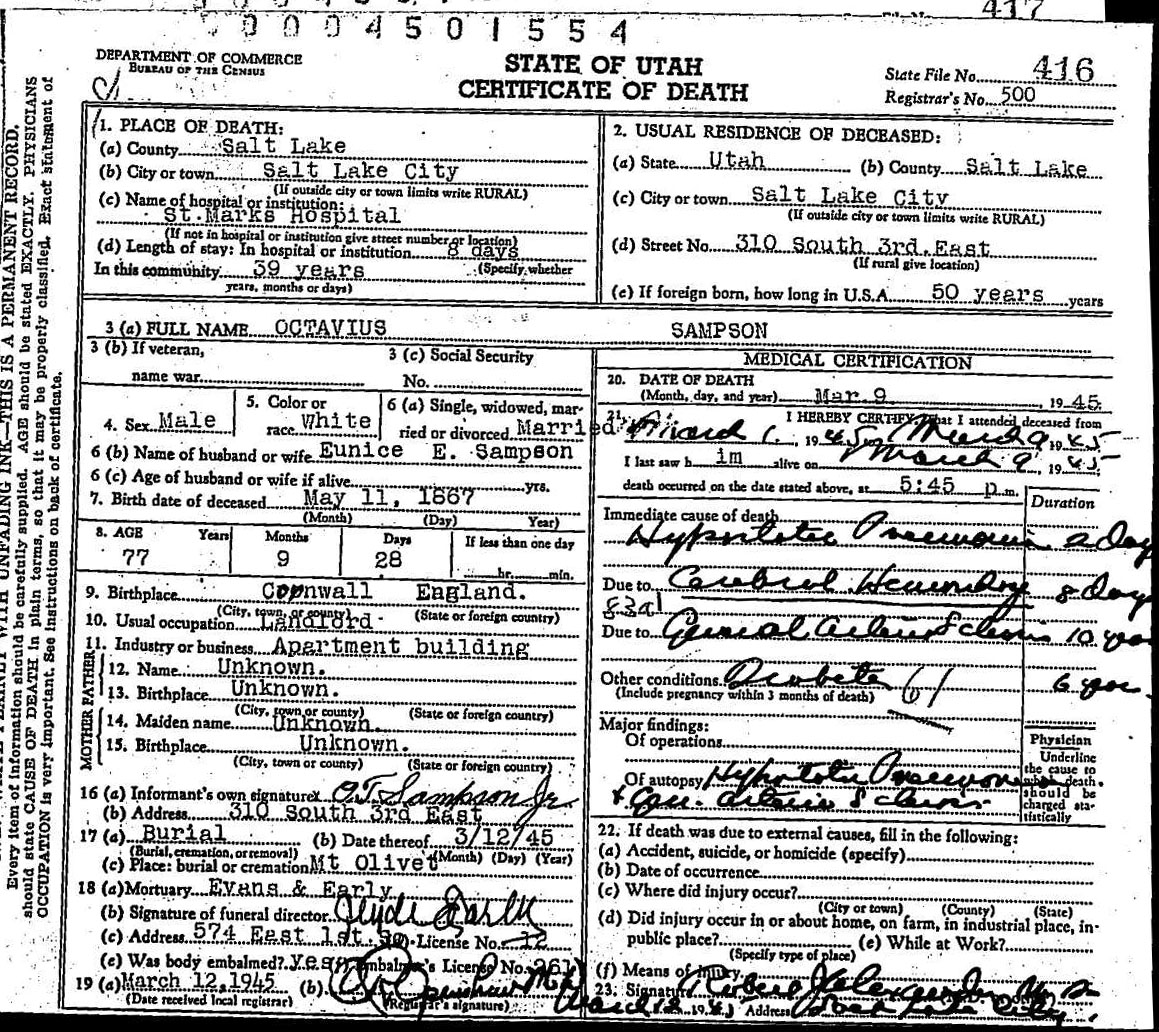 417
0004501554
DEPARTMENT OF COMMERCE
BUREAU OF THE CENSUS
STATE OF UTAH
CERTIFICATE OF DEATH
State File No. 416
Registrar's No. 500
1. PLACE OF DEATH:
(a) County Salt Lake
(b) City or town Salt Lake City
(If outside city or town limits write RURAL)
(c) Name of hospital or institution:
St.Marks Hospital
(If not in hospital or institution give street number or location)
(d) Length of stay: In hospital or institution 8 days
(Specify whether
In this community 39 years
years, months or days)
2. USUAL RESIDENCE OF DECEASED:
(a) State Utah (b) County Salt Lake
(c) City or town Salt Lake City
(If outside city or town limits write RURAL)
(d) Street No. 310 South 3rd.East
(If rural give location)
(e) If foreign born, how long in U.S.A. 50 years years
3 (a) FULL NAME OCTAVIUS SAMPSON
3 (b) If veteran,
name war
3 (c) Social Security
No.
4. Sex Male
5. Color or
race White
6 (a) Single, widowed, mar-
ried or divorced Married
6 (b) Name of husband or wife Eunice E. Sampson
6 (c) Age of husband or wife if alive yrs.
7. Birth date of deceased May 11, 1867
(Month) (Day) Year)
8. AGE Years Months Days If less than one day
77 9 28 hr. min.
9. Birthplace Cornwall England.
(City, town, or county) (State or foreign country)
10. Usual occupation Landlord
11. Industry or business Apartment building
FATHER
12. Name Unknown.
13. Birthplace Unknown.
(City, town or county) (State or foreign country)
MOTHER
14. Maiden name Unknown.
15. Birthplace Unknown.
(City, town or county) (State or foreign country)
16 (a) Informant's own signature O.T. Sampson Jr
(b) Address 310 South 3rd East
17 (a) Burial (b) Date thereof 3/12/45
(Burial, cremation, or removal) (Month) (Day) (Year)
(c) Place: burial or cremation Mt Olivet
18 (a) Mortuary Evans & Early
(b) Signature of funeral director Clyde Early
(c) Address 574 East 1st.So. License No. 12
(e) Was body embalmed? yes Embalmer's License No. 261
19 (a) March 12,1945 (b)
(Date received local registrar) (Registrar's signature)
MEDICAL CERTIFICATION
20. DATE OF DEATH
(Month, day, and year) Mar 9 1945
21. I HEREBY CERTIFY, That I attended deceased from
March 1, 1945 March 9 1945
I last saw h im alive on March 9, 1945
death occurred on the date stated above, at 5:45 p.m.
Duration
Immediate cause of death
Hypostatic Pneumonia 2 day
Due to Cerebral Hemorrhage 8 day
83a1
Due to General Arterio Sclerosis 10 year
Other conditions Diabetes 61 6 year
(Include pregnancy within 3 months of death)
Major findings:
Of operations
Of autopsy Hypostatic Pneumonia
+ Gen. arterio Sclerosis
Physician
Underline
the cause to
which death
should be
charged sta-
tistically
22. If death was due to external causes, fill in the following:
(a) Accident, suicide, or homicide (specify)
(b) Date of occurrence
(c) Where did injury occur?
(City or town) (County) (State)
(d) Did injury occur in or about home, on farm, in industrial place, in-
public place? (e) While at Work?
(Specify type of place)
(f) Means of Injury
23. Signature
March 12 1945 Address Salt Lake City
WRITE PLAINLY WITH UNFADING INK—THIS IS A PERMANENT RECORD.
Every item of information should be carefully supplied. AGE should be stated EXACTLY. PHYSICIANS
should state CAUSE OF DEATH in plain terms, so that it may be properly classified. Exact statement of
OCCUPATION is very important. See instructions on back of certificate.